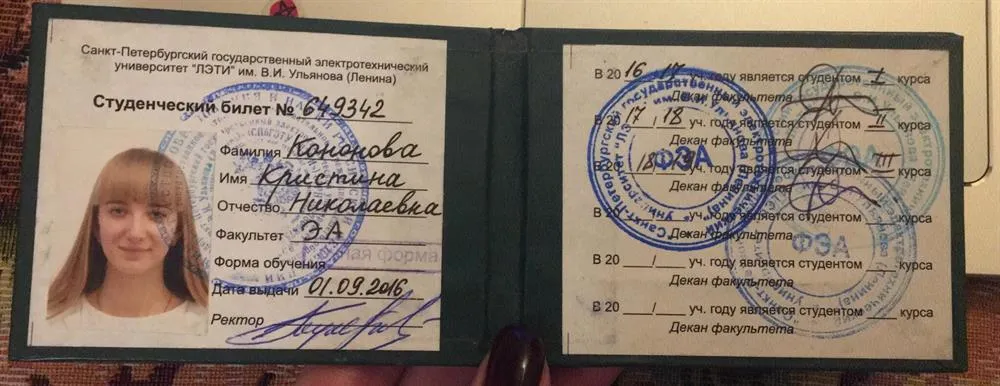 Санкт-Петербургский государственный электротехнический
университет "ЛЭТИ" им. В.И. Ульянова (Ленина)
Студенческий билет № 649342
Фамилия Кононова
Имя Кристина
Отчество Николаевна
Факультет ЭА
Форма обучения ная форма
Дата выдачи 01.09.2016
Ректор
В 20 16 / 17 уч. году является студентом I курса
Декан факультета
В 20 17 / 18 уч. году является студентом II курса
Декан факультета
В 20 18 / 19 уч. году является студентом III курса
Декан факультета
В 20 ___/___ уч. году является студентом ___ курса
Декан факультета
В 20 ___/___ уч. году является студентом ___ курса
Декан факультета
В 20 ___/___ уч. году является студентом ___ курса
Декан факультета
ФЭА
ФЭА